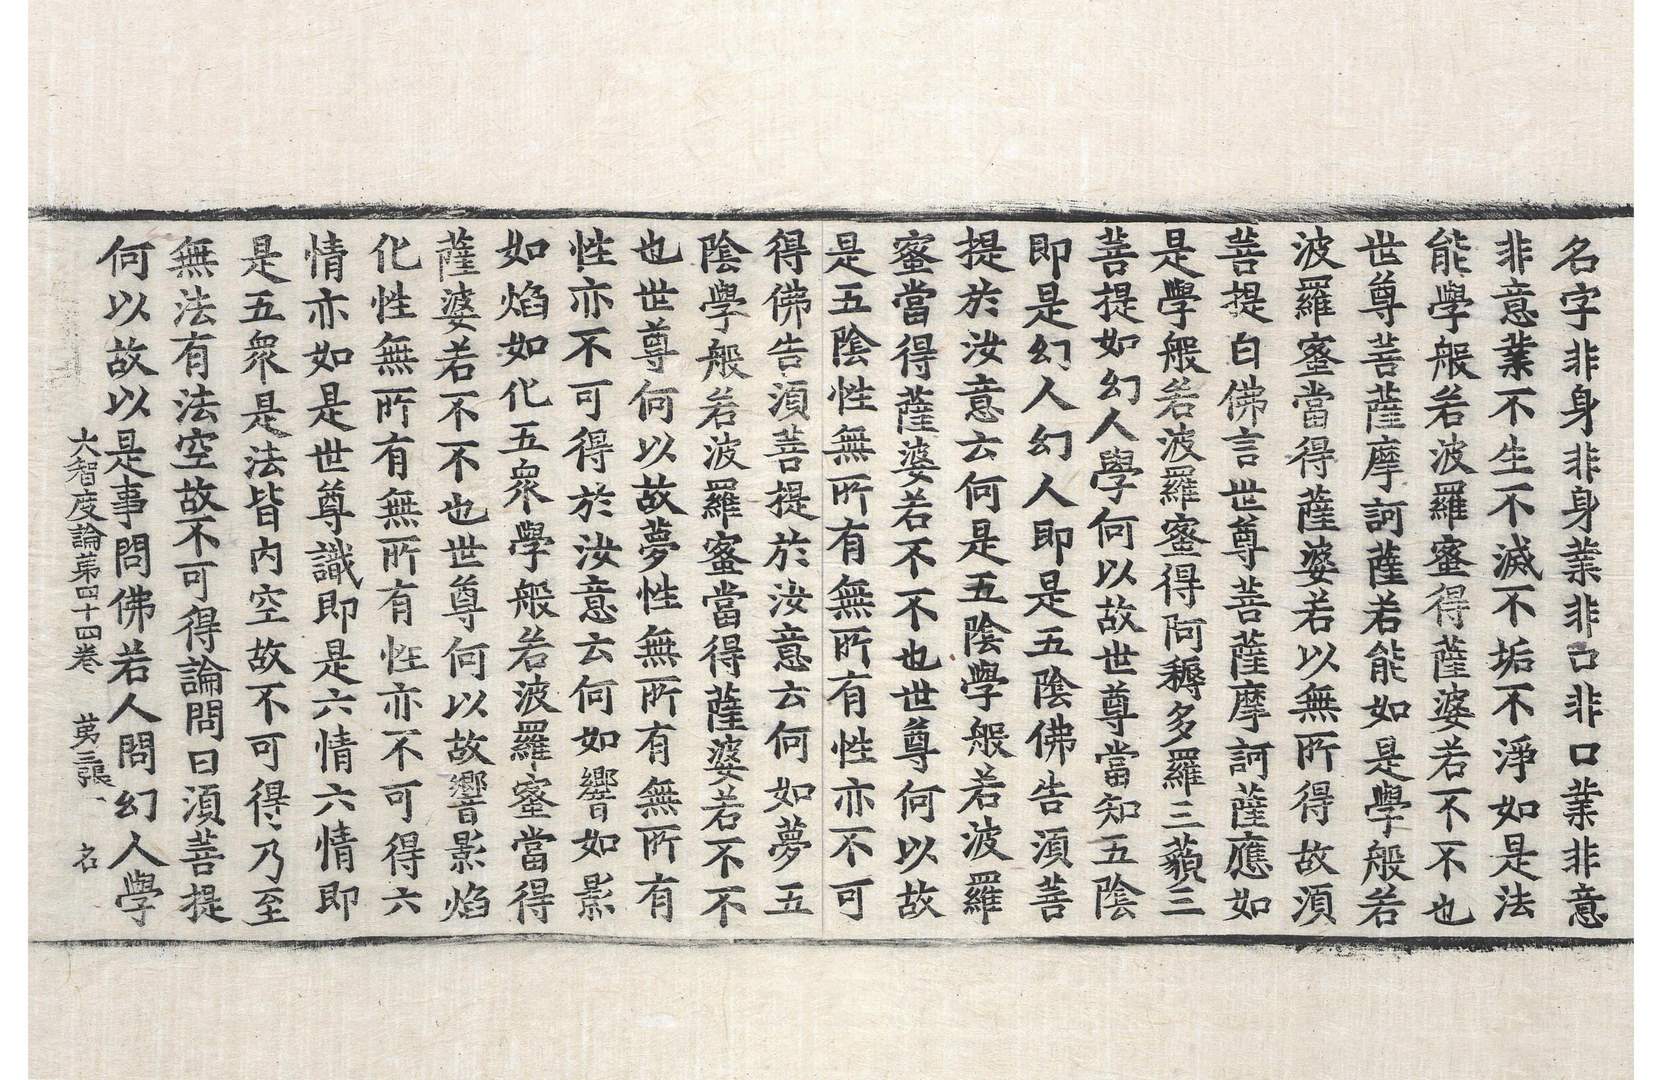 名字非身非身業非口非口業非意
非意業不生不滅不垢不淨如是法
能學般若波羅蜜得薩婆若不不也
世尊菩薩摩訶薩若能如是學般若
波羅蜜當得薩婆若以無所得故須
菩提白佛言世尊菩薩摩訶薩應如
是學般若波羅蜜得阿耨多羅三藐三
菩提如幻人學何以故世尊當知五陰
即是幻人幻人即是五陰佛告須菩
提於汝意云何是五陰學般若波羅
蜜當得薩婆若不不也世尊何以故
是五陰性無所有無所有性亦不可
得佛告須菩提於汝意云何如夢五
陰學般若波羅蜜當得薩婆若不不
也世尊何以故夢性無所有無所有
性亦不可得於汝意云何如響如影
如焰如化五衆學般若波羅蜜當得
薩婆若不不也世尊何以故響影焰
化性無所有無所有性亦不可得六
情亦如是世尊識即是六情六情即
是五衆是法皆內空故不可得乃至
無法有法空故不可得論問曰須菩提
何以故以是事問佛若人問幻人學
大智度論第四十四卷 苐三張 名